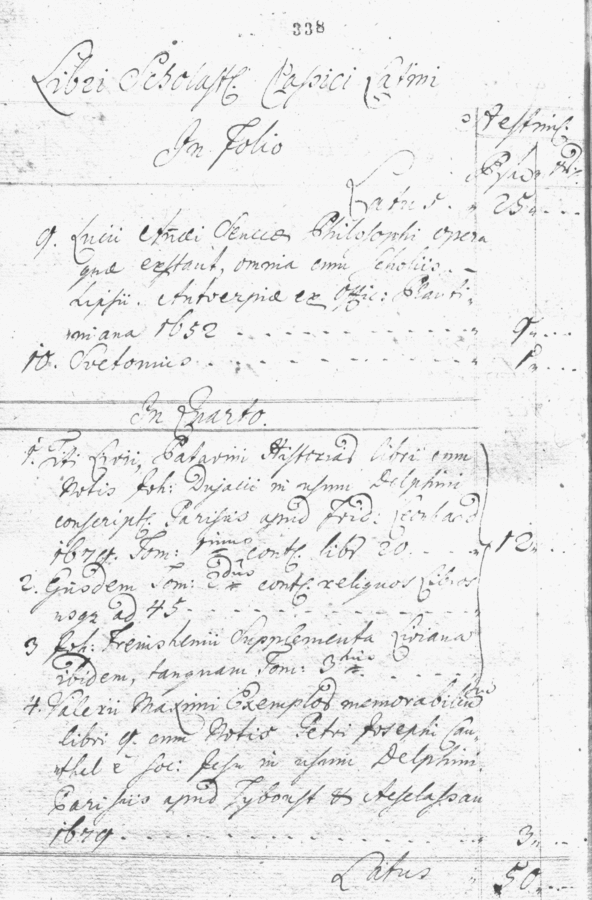 338
Libri Scholast: Classici Latini
In Folio
Aestim:
Latus. 25
9. Lucii Annæi Senecæ Philosophi opera
quæ extant, omnia cum Scholiis
Lipsii. Antverpiæ ex Offic: Planti-
niana 1652 9
10. Svetonius 1
In Quarto.
1. Titi Livii, Patavini Historiar libri cum
Notis Joh: Dujacii in usum Delphini
conscript: Parisiis apud Frid: Leonhard
1679. Tom: primus cont: libr 20. 12
2. Ejusdem Tom: 2dus cont: reliquos Libros
usqz ad 45
3 Joh: Freinshemii Supplementa Liviana
ibidem, tanquam Tom: 3tius
4. Valerii Maximi Exemplor memorabilium
libri 9. cum Notis Petri Josephi Can-
thel è Soc: Jesu in usum Delphini.
Parisiis apud &
1679. 3
Latus 50